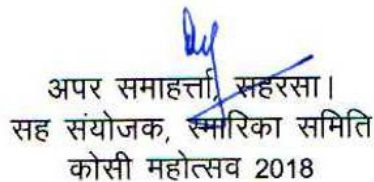 अपर समाहर्त्ता, सहरसा।
सह संयोजक, स्मारिका समिति
कोसी महोत्सव 2018